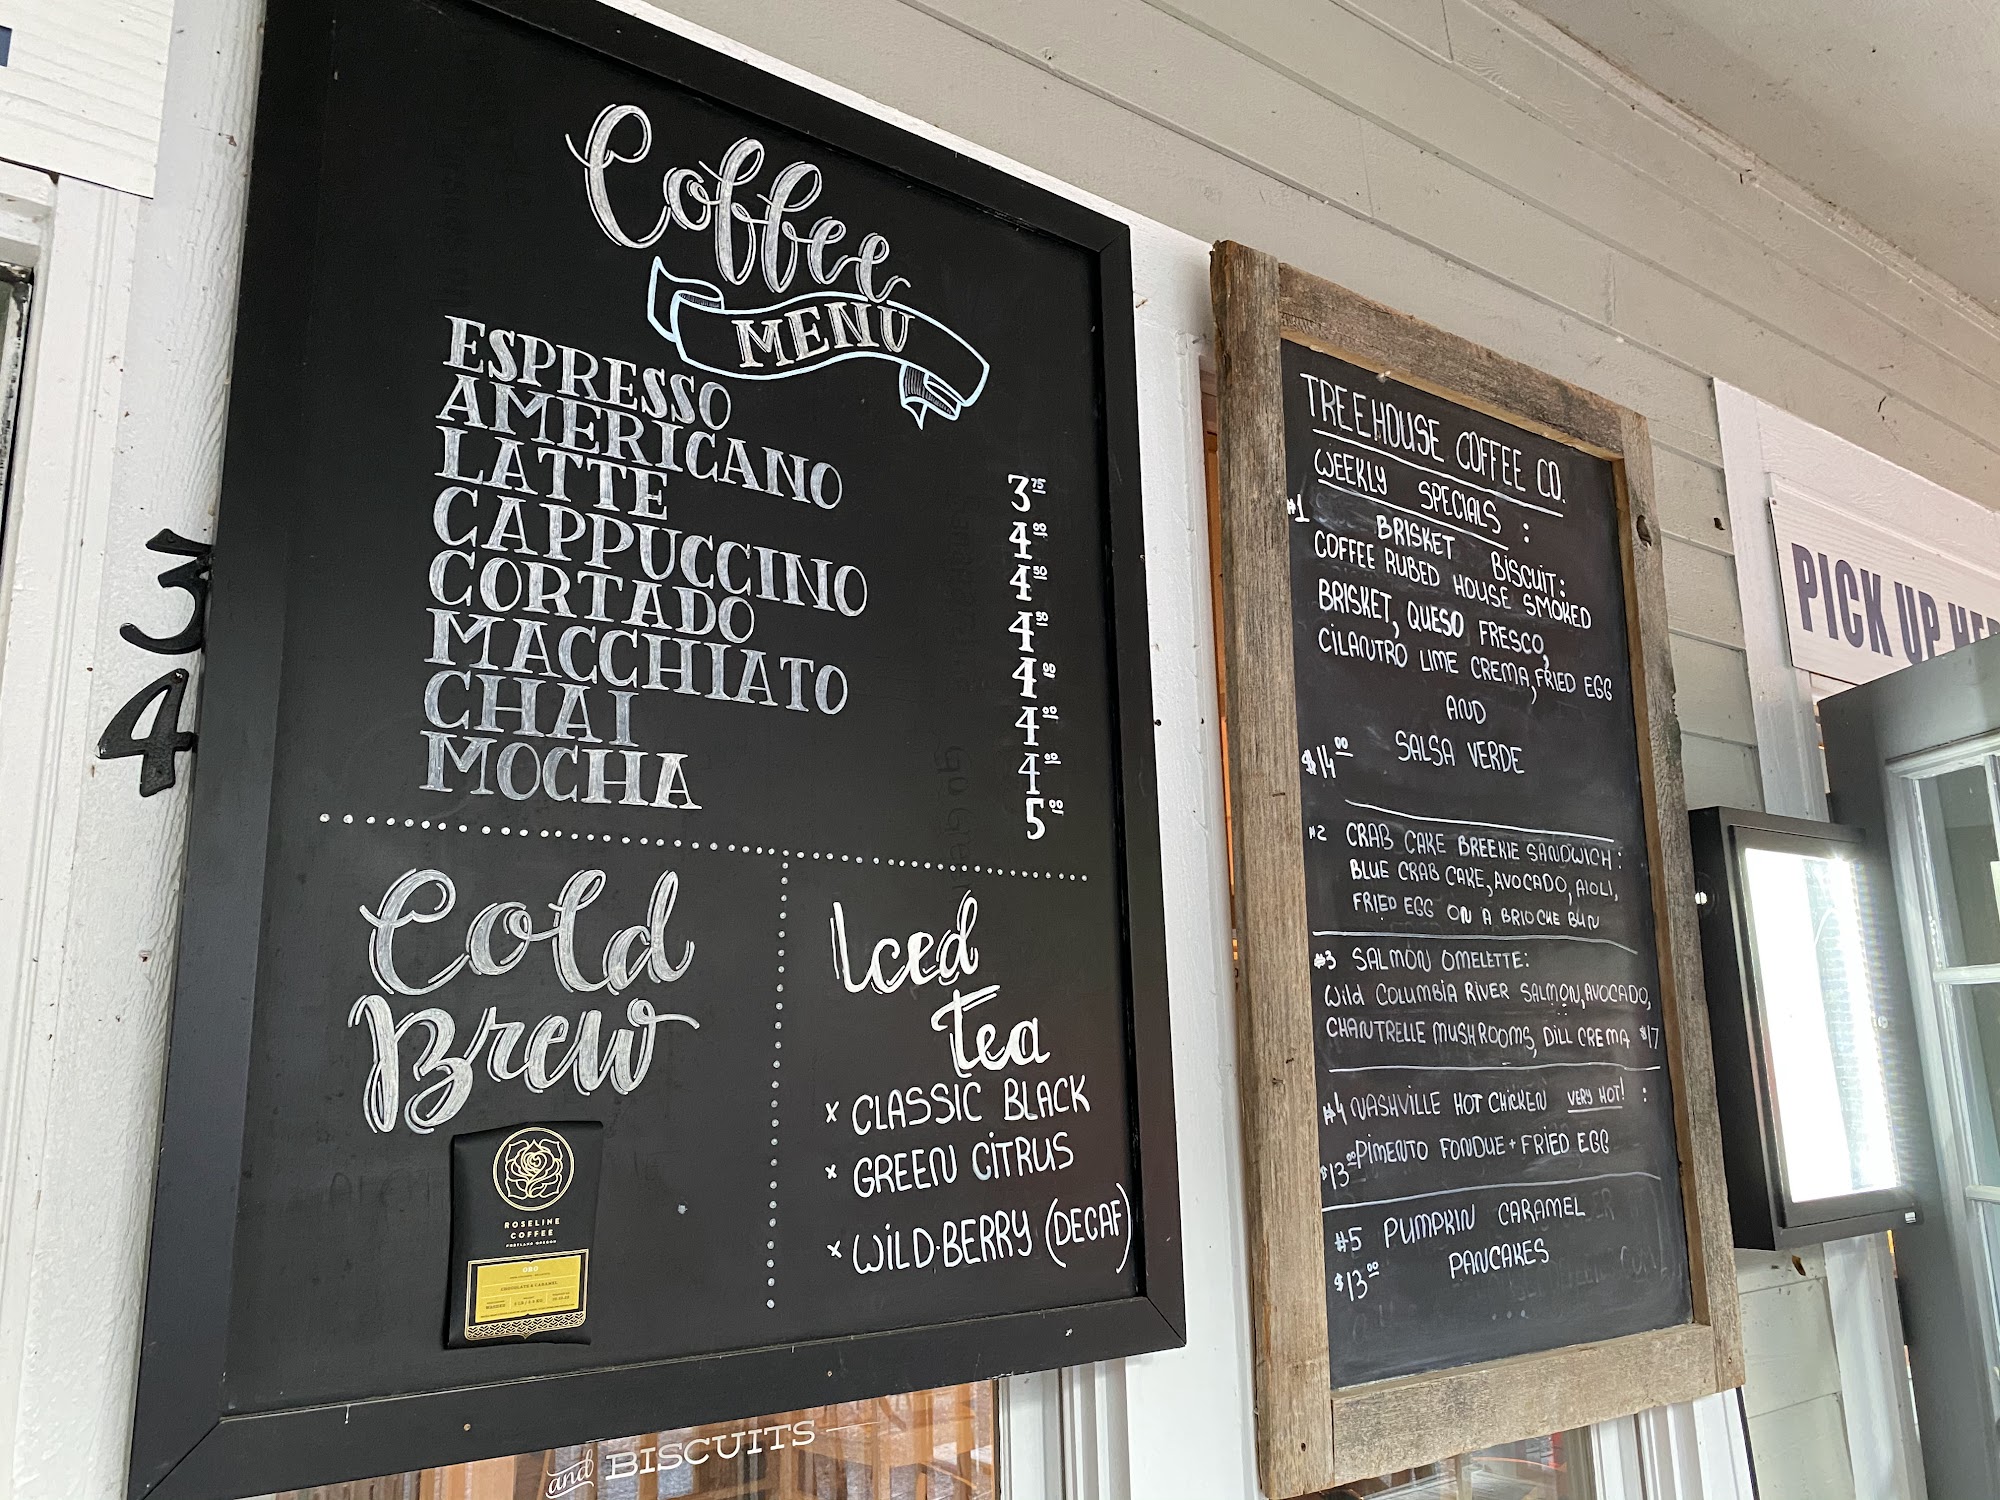 3
4
Coffee
MENU
ESPRESSO 3 75
AMERICANO 4 00
LATTE 4 50
CAPPUCCINO 4 50
CORTADO 4 00
MACCHIATO 4 00
CHAI 4 00
MOCHA 5 00
Cold
Brew
ROSELINE
COFFEE
PORTLAND OREGON
ORO
CHOCOLATE & CARAMEL
Iced
Tea
x CLASSIC BLACK
x GREEN CITRUS
x WILD·BERRY (DECAF)
and BISCUITS
TREEHOUSE COFFEE CO.
WEEKLY SPECIALS :
#1 BRISKET BISCUIT:
COFFEE RUBED HOUSE SMOKED
BRISKET, QUESO FRESCO,
CILANTRO LIME CREMA, FRIED EGG
AND
$14 00 SALSA VERDE
#2 CRAB CAKE BREEKIE SANDWICH:
BLUE CRAB CAKE, AVOCADO, AIOLI,
FRIED EGG ON A BRIOCHE BUN
#3 SALMON OMELETTE:
Wild COLUMBIA RIVER SALMON, AVOCADO,
CHANTRELLE MUSHROOMS, DILL CREMA $17
#4 NASHVILLE HOT CHICKEN VERY HOT! :
$13 00 PIMENTO FONDUE + FRIED EGG
#5 PUMPKIN CARAMEL
$13 00 PANCAKES
PICK UP